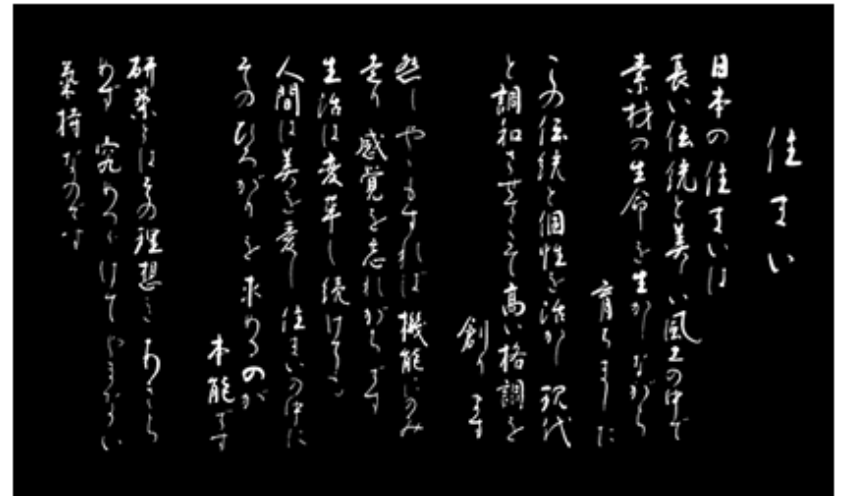 住まい
日本の住まいは
長い伝統と美しい風土の中で
素材の生命を生かしながら
育ちました
この伝統と個性を活かし 現代
と調和させてこそ高い格調を
創ります
然し やゝもすれば機能にのみ
走り 感覚を忘れがちです
生活は変革し続けても
人間は美を愛し 住まいの中に
そのひろがりを求めるのが
本能です
とはその理想をあきら
めず 究めつづけてやまない
なのです